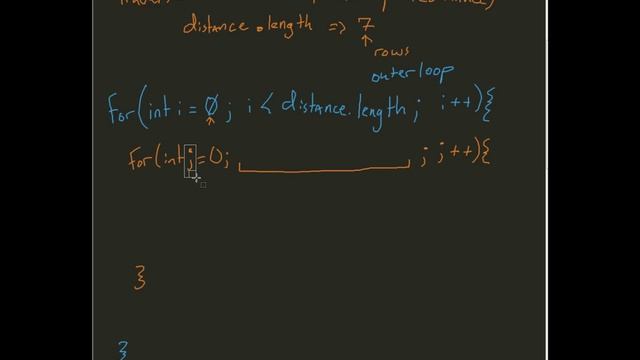 distance.length => 7
rows
outer loop
for(int i = 0; i < distance.length; i++){
for(int j = 0; ; j++){
}
}